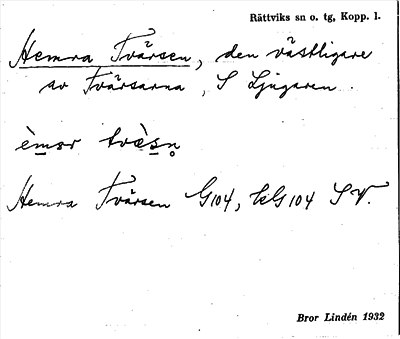 Rättviks sn o. tg, Kopp. l.
Hemra Tvärsen, den västligare
av Tvärsarna, S Ljugaren.
èmsr tvèsn̥
Hemra Tvärsen G104, kG104 SV.
Bror Lindén 1932